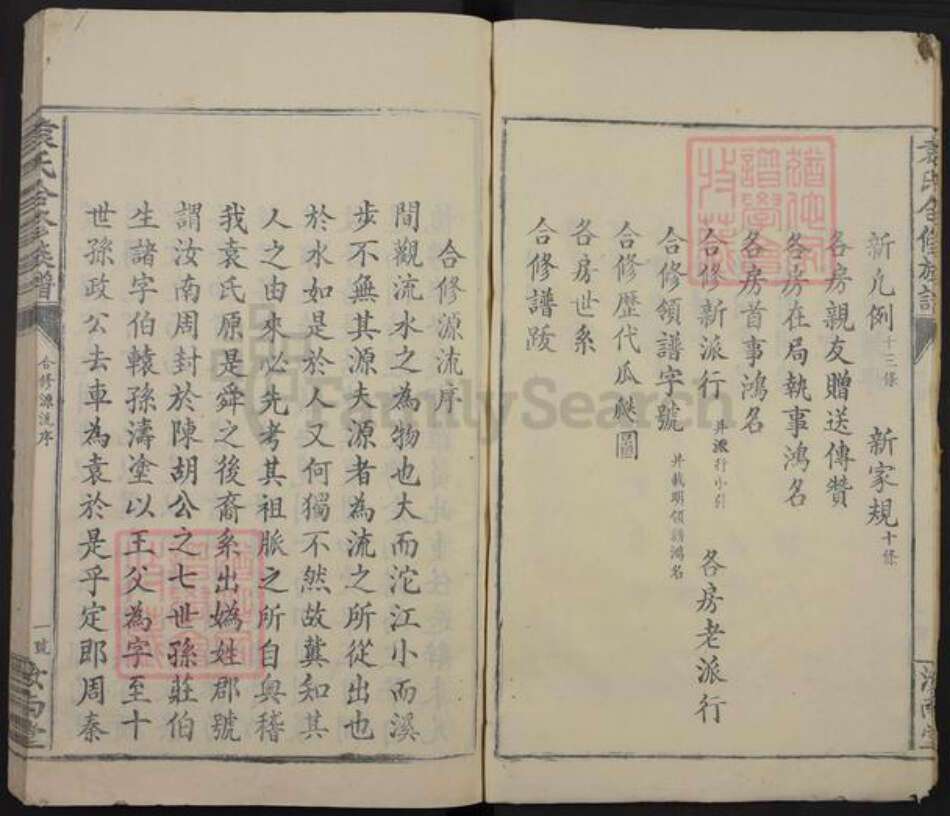 袁氏合修族譜
新凡例十三條 新家規十條
各房親友贈送傳贊
各房在局執事鴻名
各房首事鴻名
合修新派行并派行小引 各房老派行
合修領譜字號并載明領譜鴻名
合修歷代瓜瓞圖
各房世系
合修譜跋
汝南堂
合修源流序
間觀流水之為物也大而沱江小而溪
步不無其源夫源者為流之所從出也
於水如是於人又何獨不然故冀知其
人之由來必先考其祖脈之所自與稽
我袁氏原是舜之後裔系出媯姓郡號
謂汝南周封於陳胡公之七世孫莊伯
生諸字伯轅孫濤塗以王父為字至十
世孫政公去車為袁於是乎定郎周秦
袁氏合修族譜
合修源流序
一號
汝南堂
FamilySearch